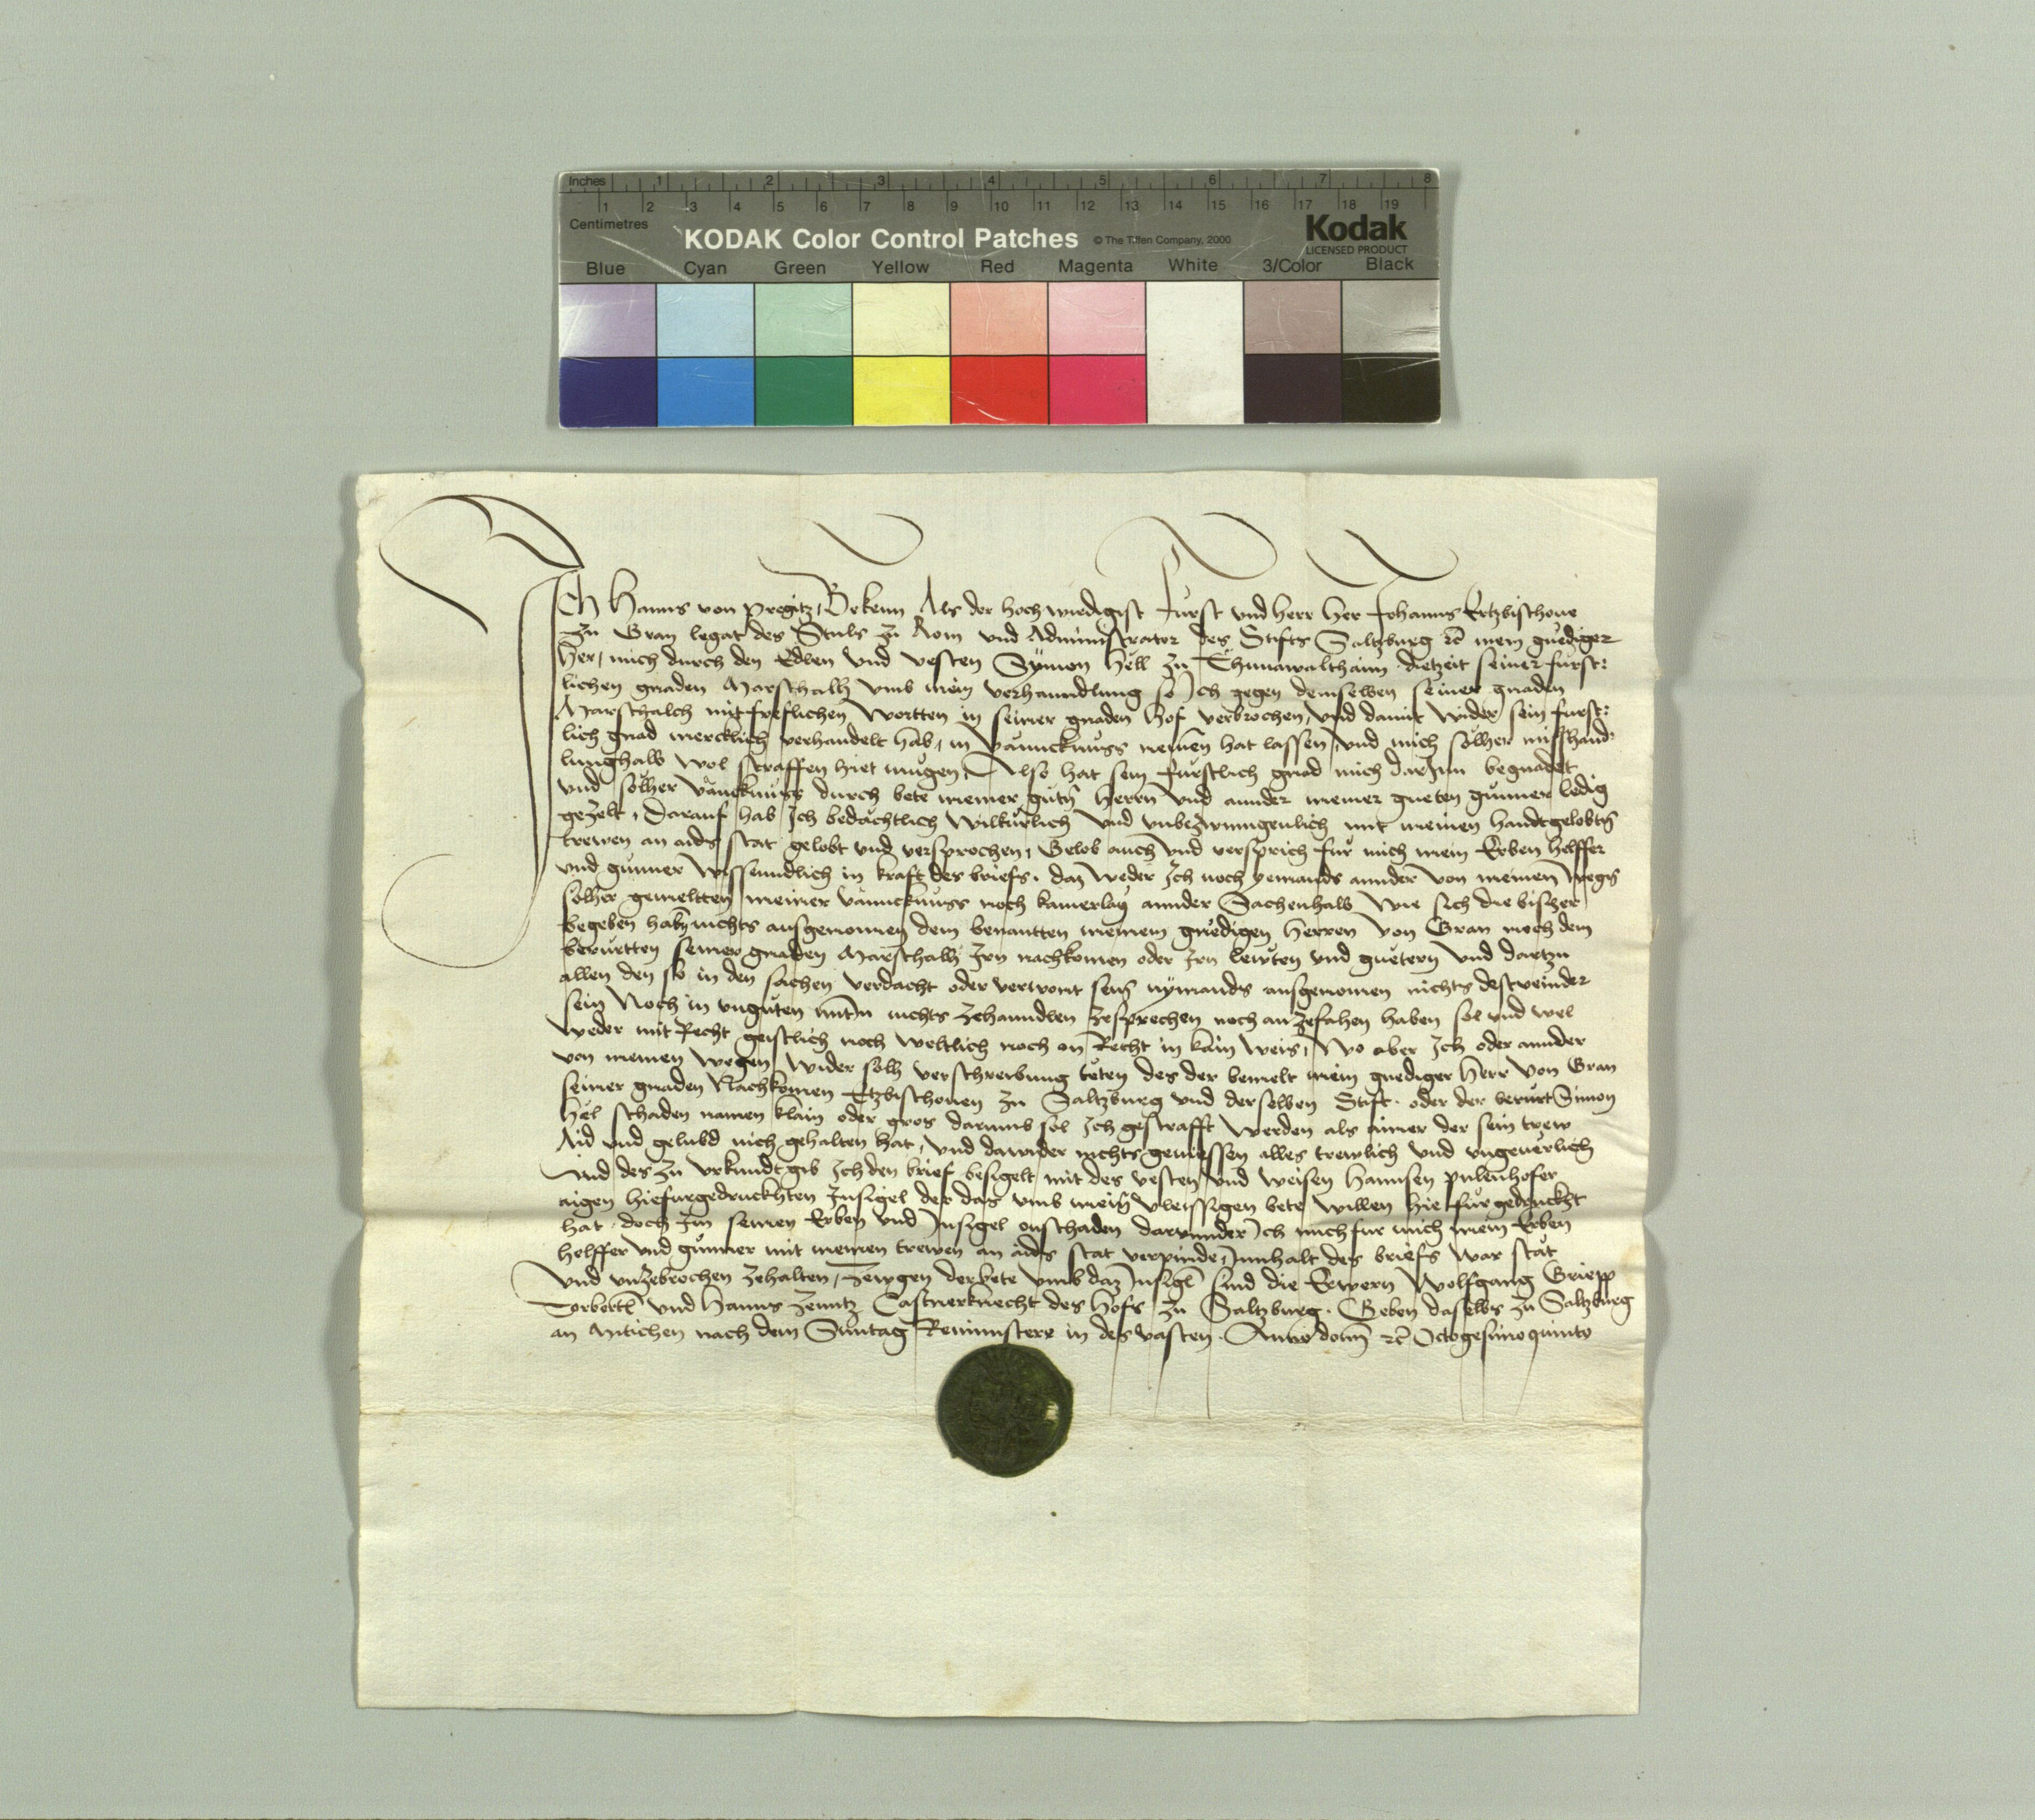 Inches 1 2 3 4 5 6 7 8
1 2 3 4 5 6 7 8 9 10 11 12 13 14 15 16 17 18 19
Centimetres
KODAK Color Control Patches © The Tiffen Company, 2000 Kodak
LICENSED PRODUCT
Blue Cyan Green Yellow Red Magenta White 3/Color Black
Ich Hanns von Pregitz, Bekenn Als der hochwirdigist Fürst und herr her Johanns Ertzbischove
zu Gran legat des Stuls zu Rom und Administrator des Stifts Saltzburg etc mein gnediger
her, mich durch den Edlen und vesten Symon Hëll zu dietzeit seiner fürst:
lichen gnaden Marschalh umb mein verhanndlung so Ich gegen demselben seiner gnaden
Marschalch mit freflichen wortten in seiner gnaden hof verbrochen, und damit wider sein fürst:
lich gnad mercklich verhandelt hab, in vänncknüss nemen hat lassen, und mich sölher misshand:
lunghalb wol straffen hiet mügen, Also hat sein fürstlich gnad mich darInn begnadet
und sölher vänncknüss durch bete meiner gutn herrn und annder meiner gueten günner ledig
gezelt, Darauf hab Ich bedächtlich wilkürlich und unbezwungenlich mit meinen handtgelobtn
trewen an aids stat gelobt und versprochen, Gelob auch und versprich für mich mein Erben helffer
und günner wissenndlich in kraft des briefs, daz weder Ich noch yemands annder von meinen wegn
sölher gemeltten meiner vännckhnuss noch kainerlay annder Sachenhalb wie sich die bisher
begeben habn nichts ausgenomen dem benantten meinem gnedigen herren von Gran noch dem
berürtten seiner gnaden Marschalh Irn nachkomen oder Irn lewten und guetern und dartzu
allen den so in den sachen verdacht oder verwont sein nymands ausgenomen nichts destweinder
sein Noch in unguten nichts zehanndlen zesprechen noch anzefahen haben sol und wel
weder mit Recht geistlich noch weltlich noch on Recht in kain weis, Wo aber Ich oder annder
von meinen wegen wider sölh verschreibung teten des der bemelt mein gnediger herr von Gran
seiner gnaden Nachkomen Ertzbischoven zu Saltzburg und derselben Stift oder der berürt Simon
Hël schaden namen klain oder gros darumb sol Ich gestrafft werden als ainer der sein trew
Aid und gelubd nich gehalten hat, und dawider nichts geniessen alles trewlich und ungeuerlich
Und des zu urkundt gib Ich den brief besigelt mit des vesten und weisen Hannsen Pulenhofer
aigen hiefürgedruckhten Insigel der das umb mein vleissigen bete willen hiefür gedruckht
hat doch Im seinen Erben und Insigel onschaden darunnder Ich mich fur mich mein Erben
helffer und günner mit meinen trewen an aids stat verpinde Innhalt des briefs war stät
und unzebrochen zehalten, Zewgen der bete umb daz Insigl sind die Erwern Wolfgang
und Hanns Castnerknecht des hofs zu Saltzburg. Geben daselbs zu Saltzburg
an Mitichen nach dem Sunntag Reminiscere in der vasten Anno domini etc Octogesimo quinto